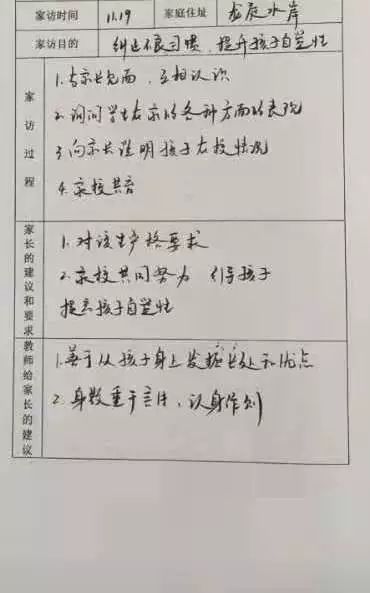 家访时间 11.19 家庭住址 龙辰水岸
家访目的 纠正不良习惯、提升孩子自觉性
家访过程
1.与家长见面,互相认识
2.询问学生在家的各种方面的表现
3.向家长说明孩子在校情况
4.家校共育
家长的建议和要求
1.对该生严格要求
2.家校共同努力 引导孩子
提高孩子自觉性
教师给家长的建议
1.善于从孩子身上发掘长处和优点
2.身教重于言传、以身作则